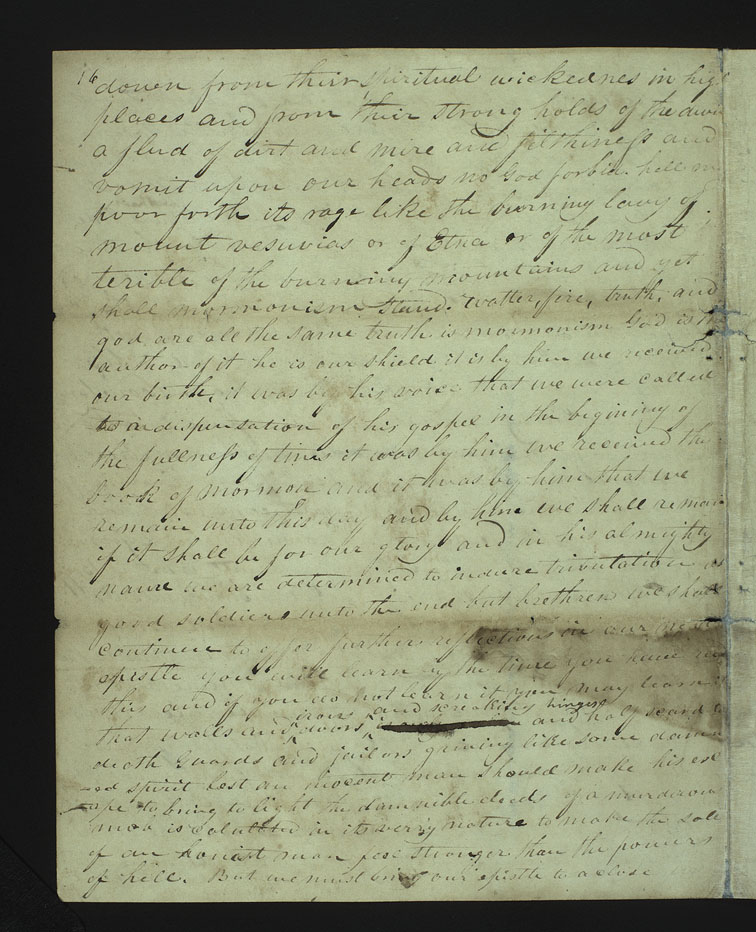 16
down from their spiritual wickednes in hig
places and from their strong holds of the
a flud of dirt and mire and filthiness and
vomit upon our heads no God forbid. hell m
poor forth its rage like the burning lavy of
mount vesuvias or of Etna or of the most
terible of the burning mountains and yet
shall mormonism stand. watter, fire, truth, and
god are all the same truth is mormonism God is the
author of it he is our shield it is by him we received
our birth, it was by his voice that we were called
to a dispensation of his gospel in the begining of
the fullness of times it was by him we received the
book of mormon and it was by him that we
remain unto this day and by him we shall remain
if it shall be for our glory and in his almighty
name we are determined to indure tribulation as
good soldiers unto the end but brethren we shall
continue to offer further reflections in our next
epistle you will learn by the time you have
this and if you do not learn it you may learn it
that walls and irons doors and screaking hinges and half scard to
death Guards and jailors grining like some damn
ed spirit lest an inocent man should make his esc
ape to bring to light the damnible deeds of a murderous
mob is calulated in its verry nature to make the sole
of an honist man feel stronger than the powers
of hell. But we must bring our epistle to a close